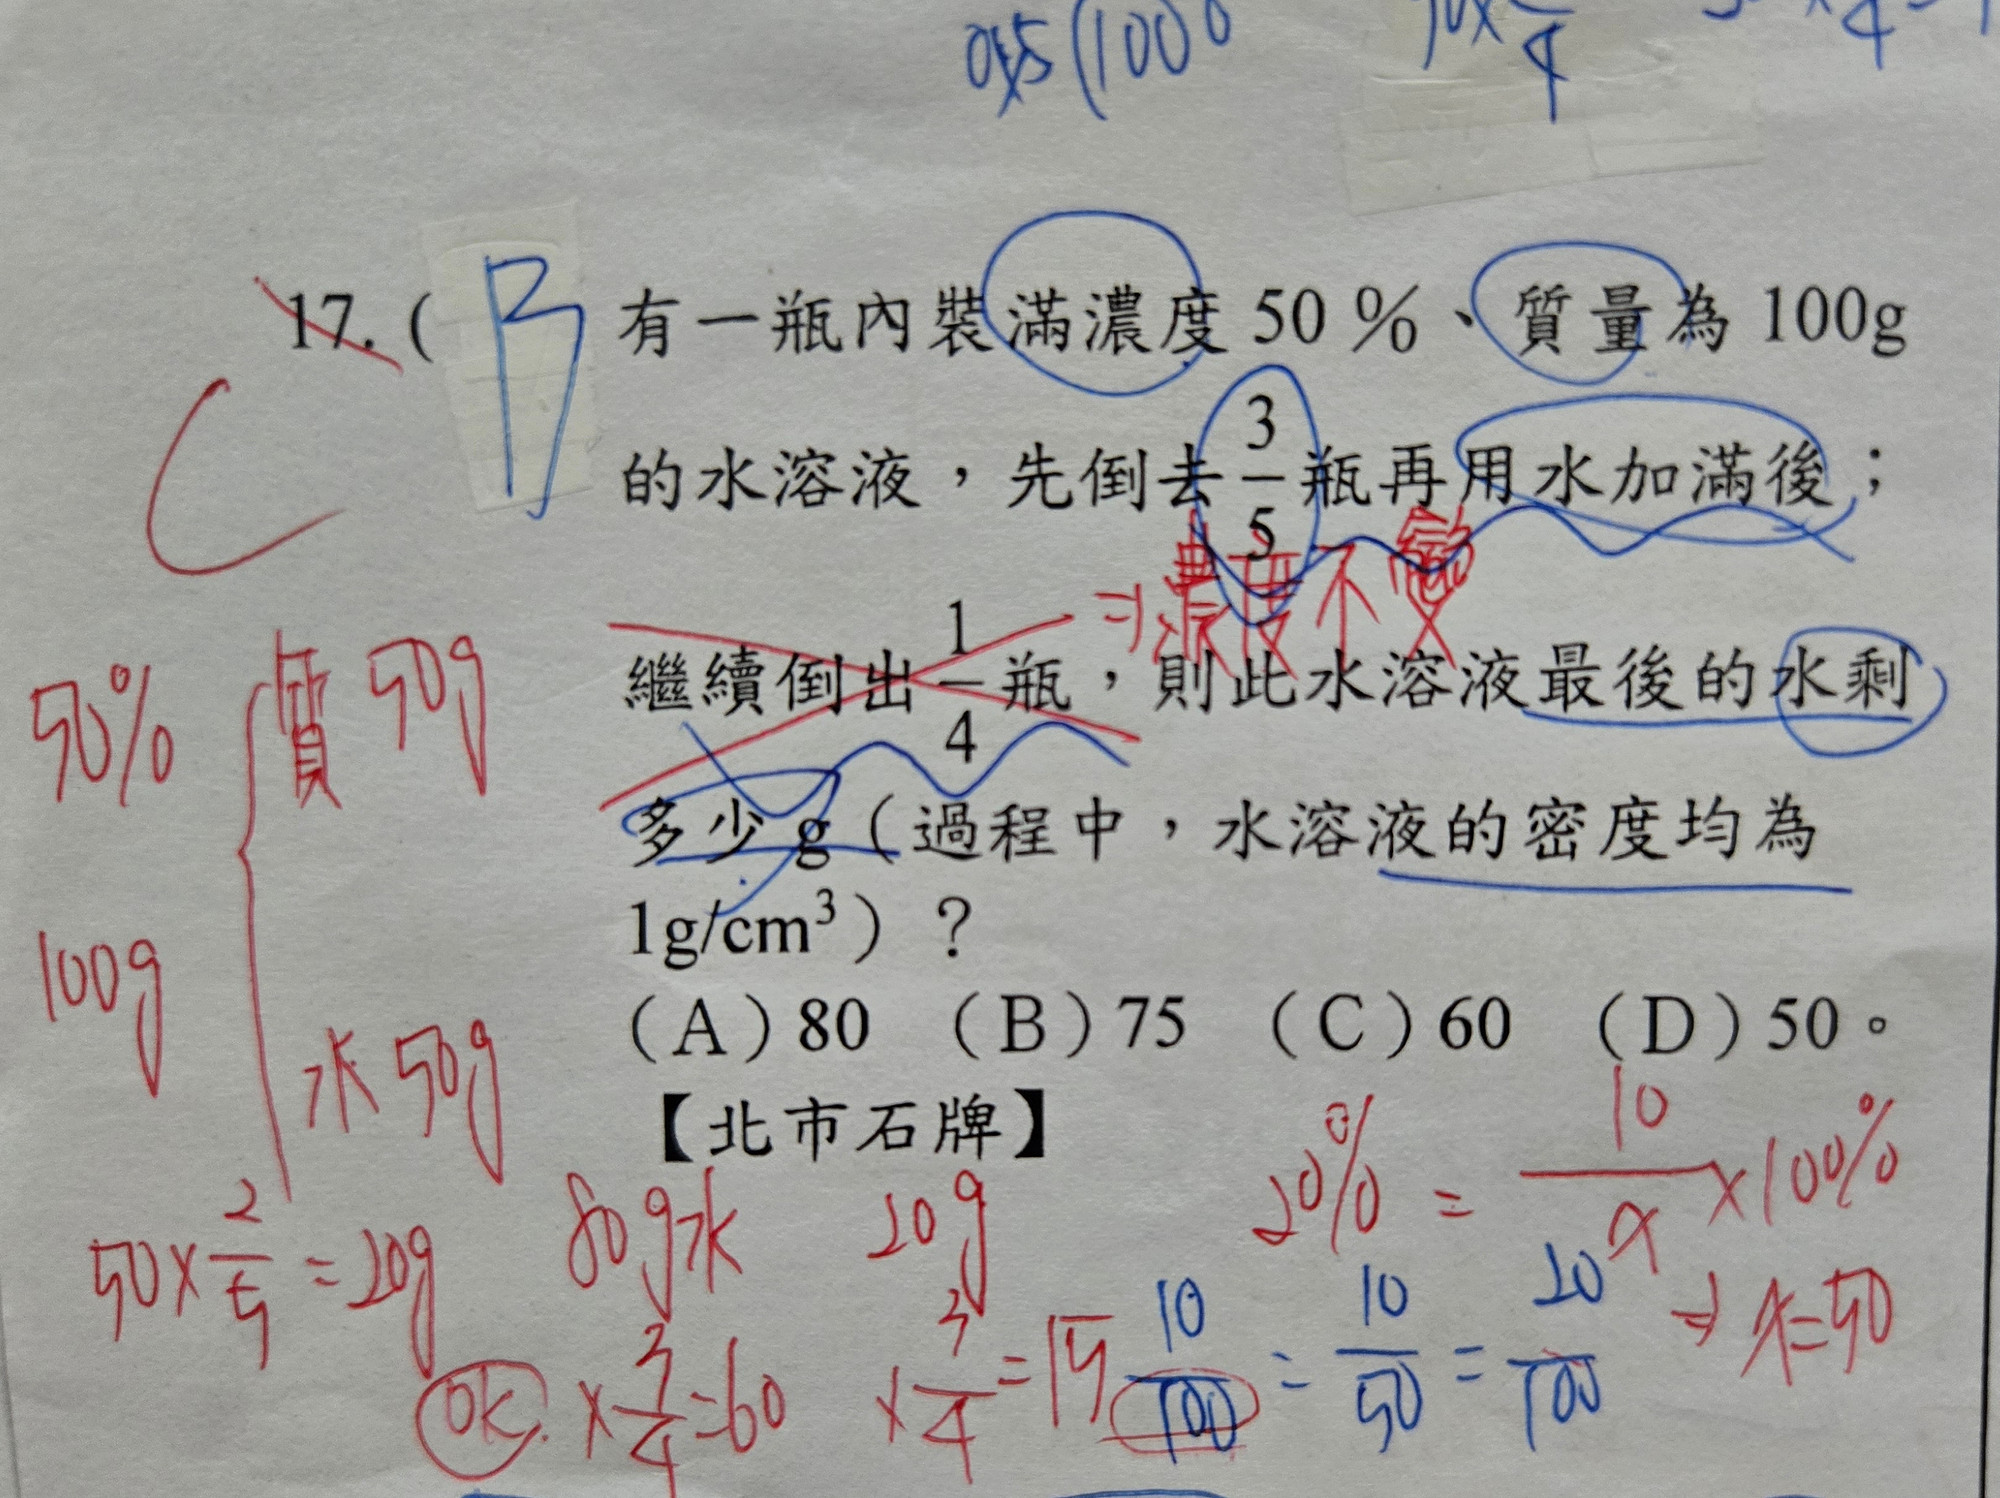 045 (100 0
17. ( B 有一瓶內裝滿濃度 50 %、質量為 100g
C
的水溶液，先倒去 3/5 瓶再用水加滿後；
⇒濃度不變
繼續倒出 1/4 瓶，則此水溶液最後的水剩
多少 g（過程中，水溶液的密度均為
1g/cm³）？
（A）80 （B）75 （C）60 （D）50。
【北市石牌】
50%
100g
質 50g
水 50g
50 × 2/5 = 20g
80g水
× 3/4 = 60
OK.
20g
× 3/4 = 15
20% = 10/x × 100%
⇒ x = 50
10/100 = 10/50 = 20/100